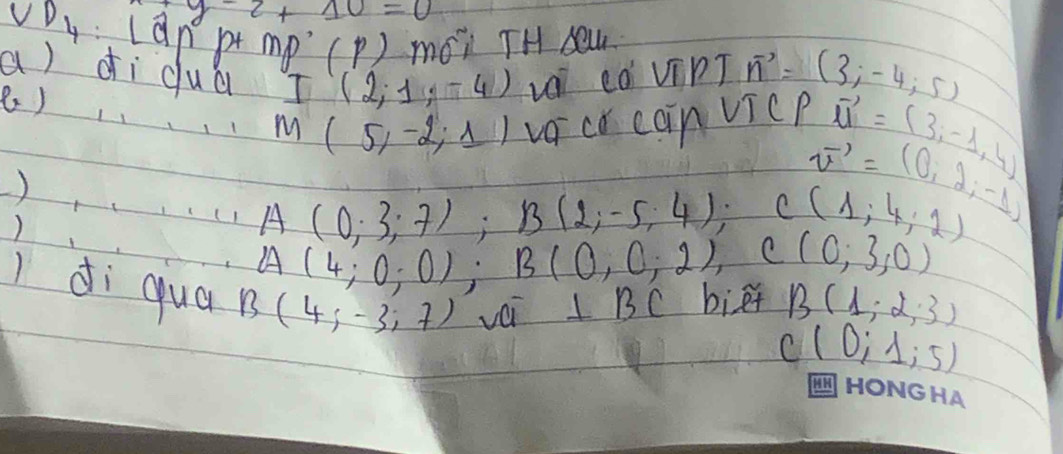 y - z + 10 = 0
VD4: Lập pt mp (P) mỗi TH sau.
a) đi qua I (2; 1; -4) và có VTPT n⃗ = (3; -4; 5)
b) ........ M (5; -2; 1) và có cặp VTCP u⃗ = (3; -1, 4)
v⃗ = (0; 2; -1)
) ........ A (0; 3; 7); B (2; -5; 4); C (1; 4; 2)
) ........ A (4; 0; 0); B (0; 0; 2), C (0; 3; 0)
) đi qua B (4; -3; 7) và ⊥ BC biết B (1; 2; 3)
C (0; 1; 5)
HH HONG HA